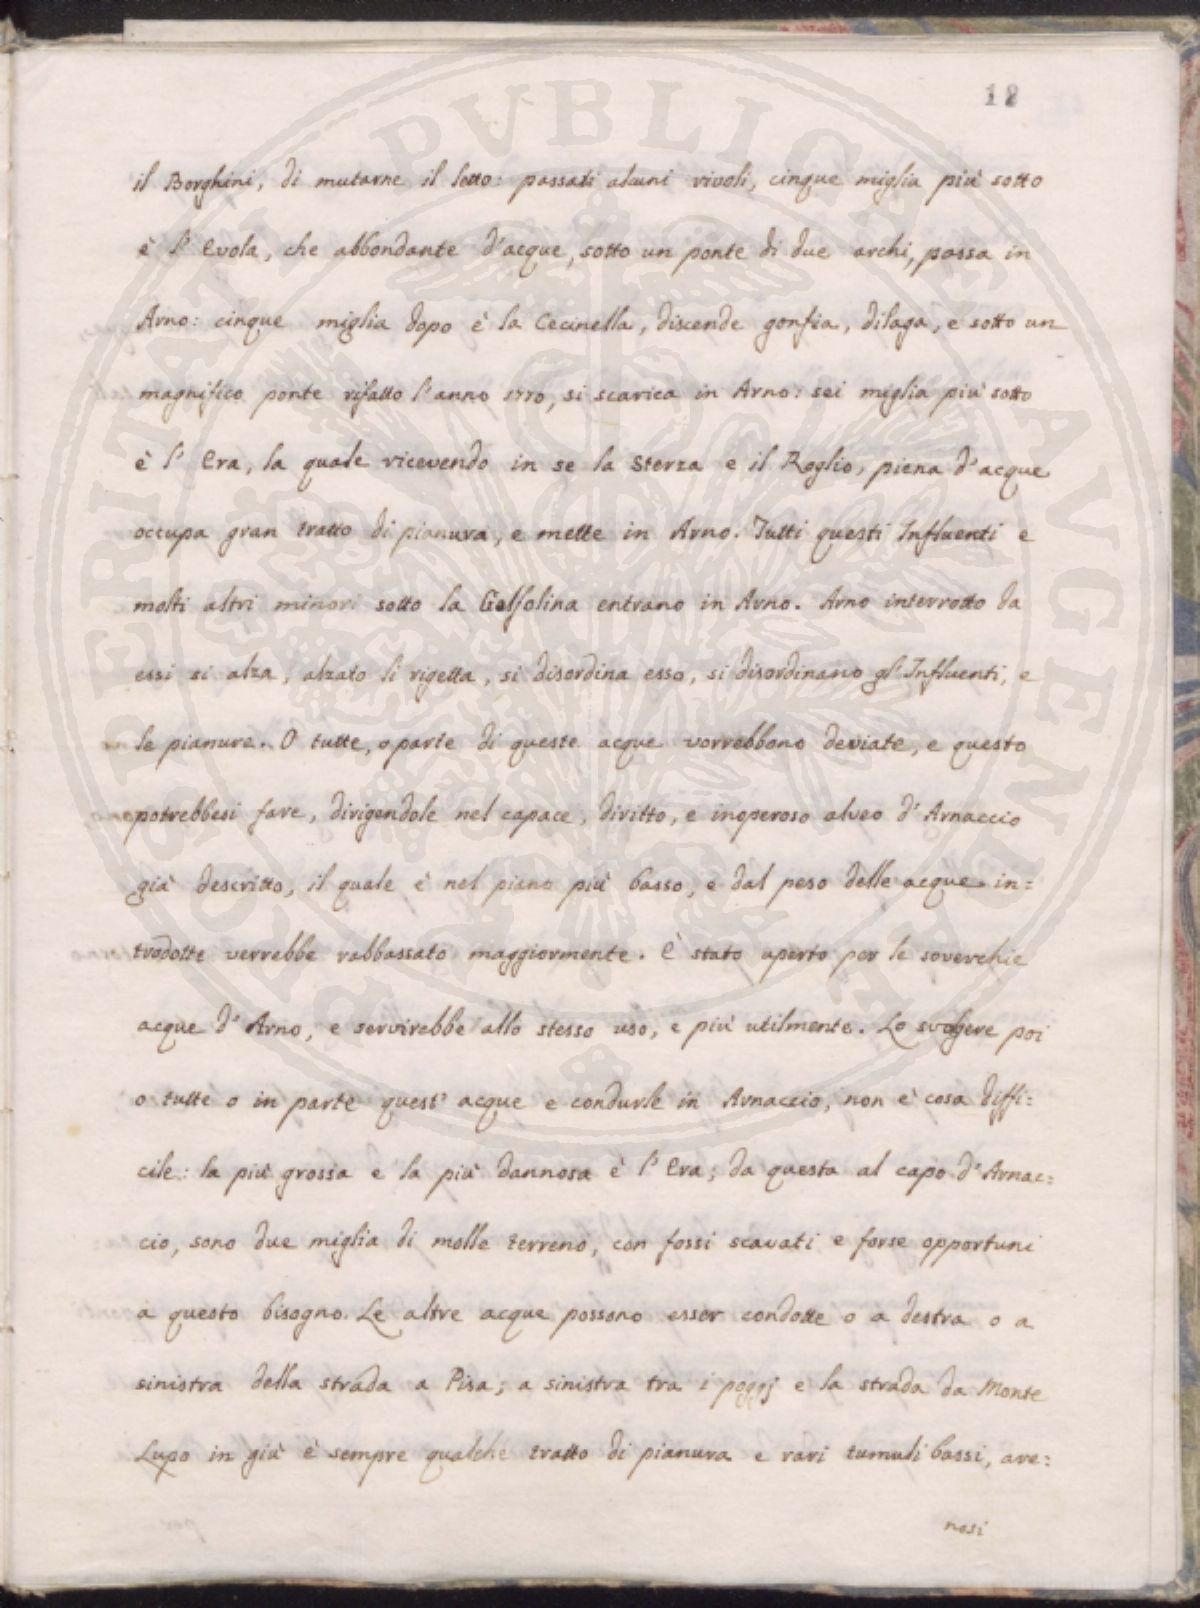 12
il Borghini, di mutarne il letto: passati alcuni rivoli, cinque miglia più sotto
è l' Evola, che abbondante d'acque, sotto un ponte di due archi, passa in
Arno: cinque miglia dopo è la Cecinella, discende gonfia, dilaga, e sotto un
magnifico ponte rifatto l'anno 1770, si scarica in Arno: sei miglia più sotto
è l' Era, la quale ricevendo in se la Sterza e il Roglio, piena d'acque
occupa gran tratto di pianura, e mette in Arno. Tutti questi Influenti e
molti altri minori sotto la Golfolina entrano in Arno. Arno interrotto da
essi si alza, alzato li rigetta, si disordina esso, si disordinano gl' Influenti, e
le pianure. O tutte, o parte di queste acque vorrebbono deviate, e questo
potrebbesi fare, dirigendole nel capace, diritto, e inoperoso alveo d' Arnaccio
già descritto, il quale è nel piano più basso, e dal peso delle acque in=
trodotte verrebbe rabbassato maggiormente. È stato aperto per le soverchie
acque d' Arno, e servirebbe allo stesso uso, e più utilmente. Lo svolgere poi
o tutte o in parte quest' acque e condurle in Arnaccio, non è cosa diffi=
cile: la più grossa e la più dannosa è l' Era; da questa al capo d' Arnac=
cio, sono due miglia di molle terreno, con fossi scavati e forse opportuni
a questo bisogno. Le altre acque possono esser condotte o a destra o a
sinistra della strada a Pisa; a sinistra tra i poggj e la strada da Monte
Lupo in giù è sempre qualche tratto di pianura e rari tumuli bassi, are=
nosi
PROSPERITATI PVBLICAE AVGENDAE